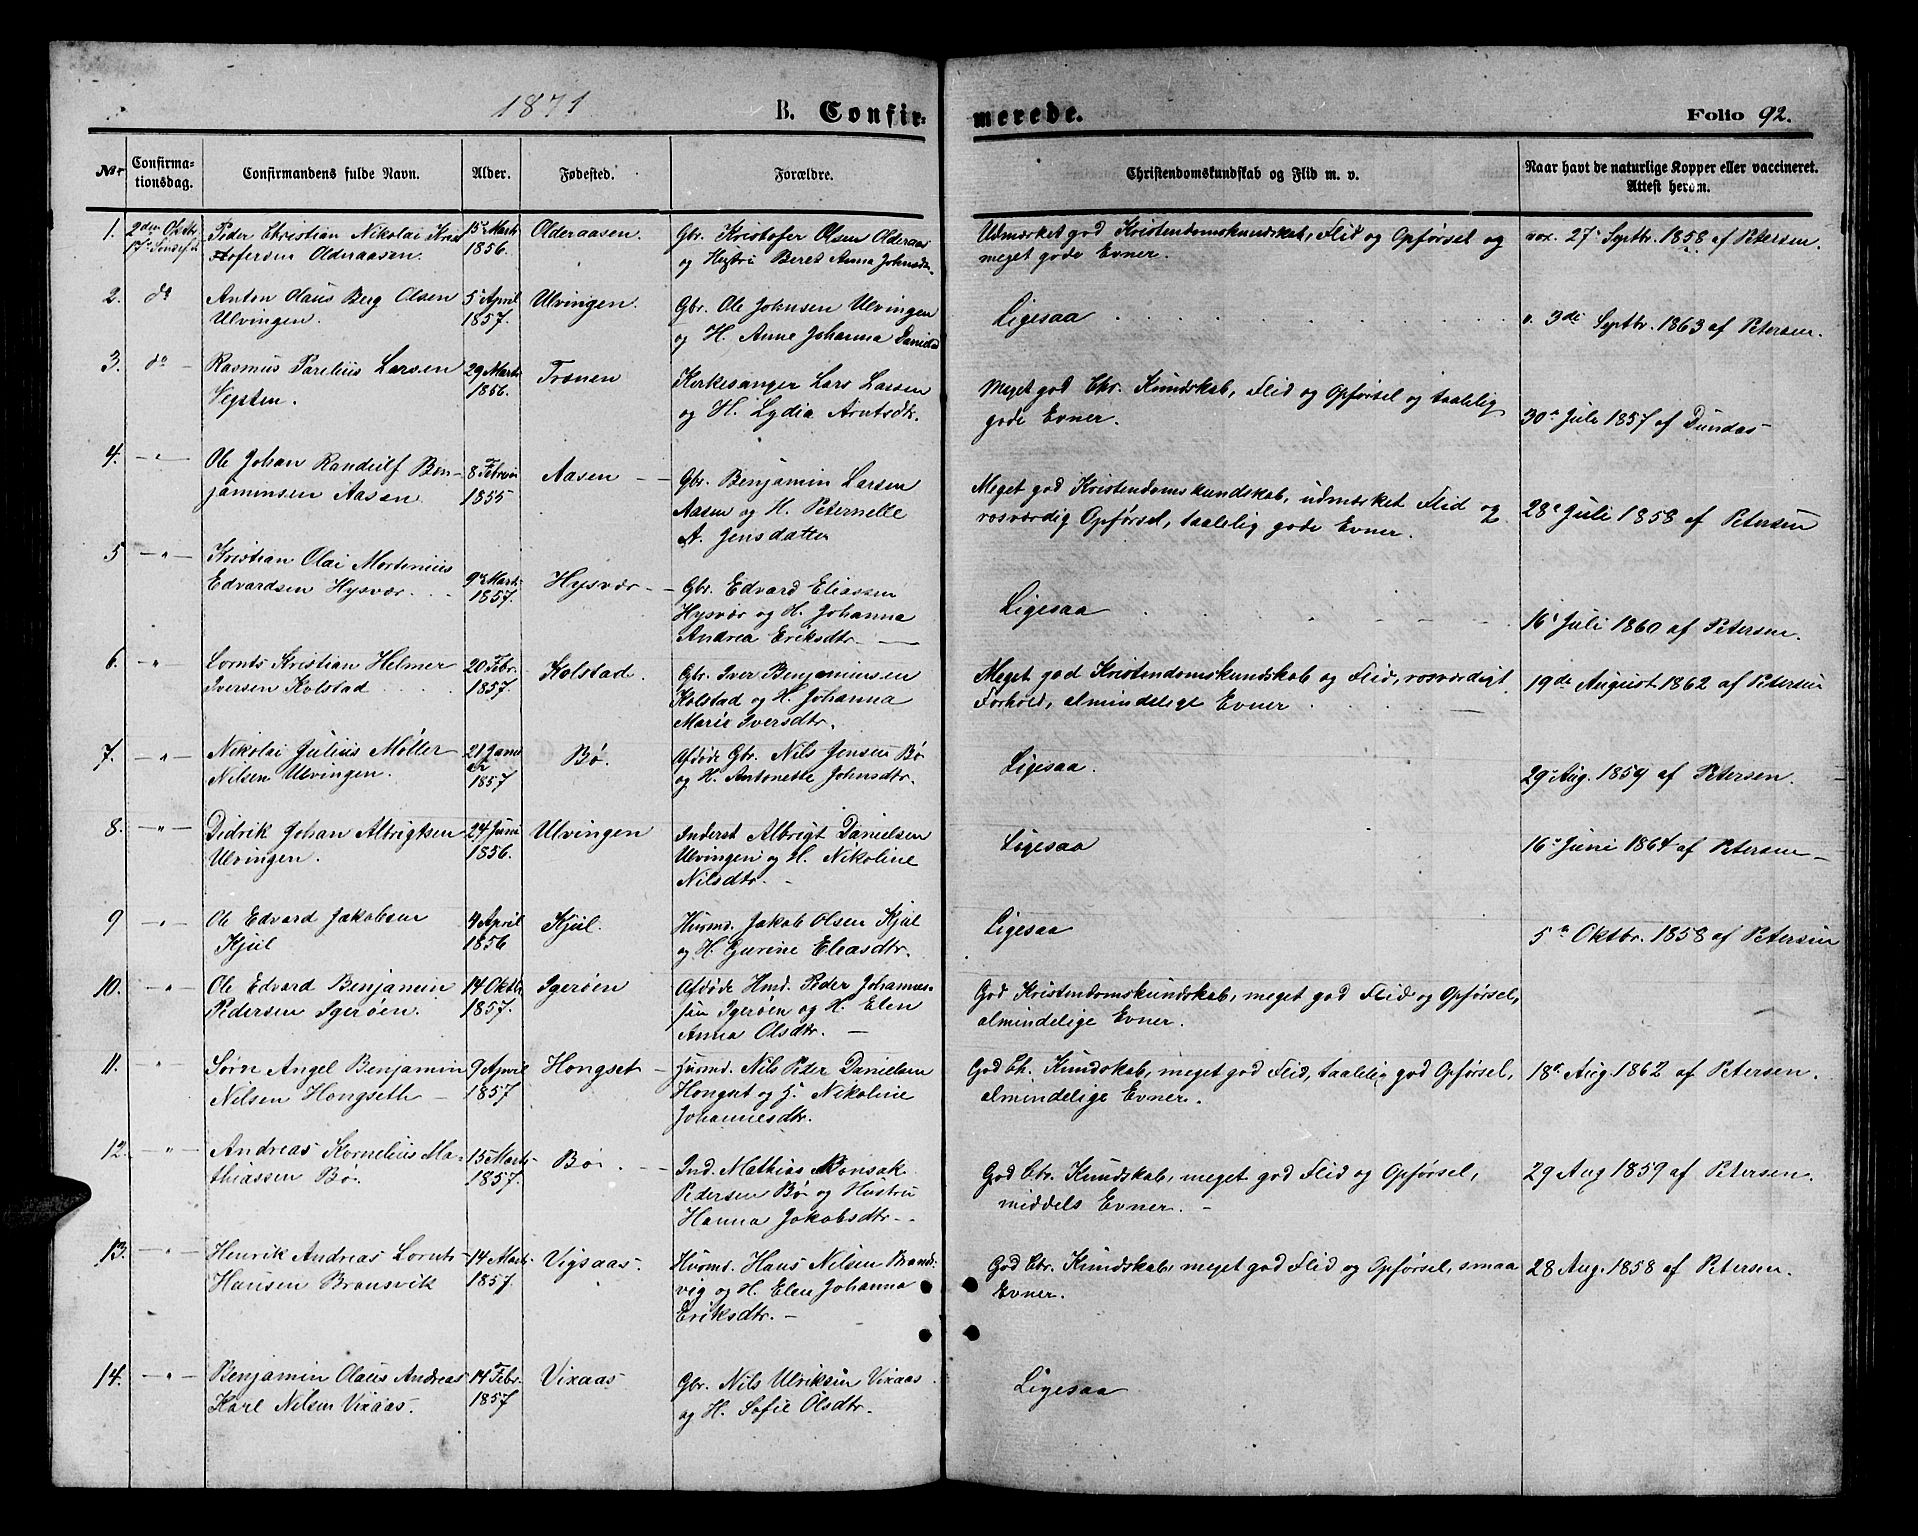 1871
B. Confirmerede.
Folio 92.
Nr.
Confirmationsdag.
Confirmandens fulde Navn.
Alder.
Fødested.
Forældre.
Christendomskundskab og Flid m. v.
Naar havt de naturlige Kopper eller vaccineret. Attest herom.
1. 2den Oktbr
Peder Christian Nikolai Krist
ofersen Olderaasen.
15 Marts
1856.
Olderaasen
Gbr. Kristofer Olsen Olderaas
og Hustru Beret Anna Johnsdtr
Udmærket god Kristendomskundskab, Flid og Opførsel og
meget gode Evner.
vax. 27 Septbr. 1858 af Petersen.
2. do
Anton Olaus Berg Olsen
Ulvingen.
5 April
1857.
Ulvingen.
Gbr. Ole Johnsen Ulvingen
og H. Anne Johanna Danielsd
Ligesaa
v. 3de Septbr. 1863 af Petersen.
3. do
Rasmus Parelius Larsen
Vegsten.
29 Marts
1856.
Trænen
Kirkesanger Lars Larsen
og H. Lydia Arntsdtr.
Meget god Chr. Kundskab, Flid og Opførsel og taalelig
gode Evner.
30 Juli 1857 af Dundas
4. — " —
Ole Johan Randulf Ben-
jaminsen Aasen
8 Februar
1855
Aasen
Gbr. Benjamin Larsen
Aasen og H. Peternelle
A. Jensdatter
Meget god Kristendomskundskab, udmærket Flid og
rosværdig Opførsel, taalelig gode Evner.
28 Juli 1858 af Petersen
5 — " —
Kristian Olai Mortenius
Edvardsen Hysvær.
9 Marts
1857.
Hysvær
Gbr. Edvard Eliassen
Hysvær og H. Johanna
Andrea Eriksdtr.
Ligesaa
16 Juli 1860 af Petersen.
6. "
Lornts Kristian Helmer
Iversen Kolstad
20 Febr.
1857.
Kolstad.
Gbr. Iver Benjaminsen
Kolstad og H. Johanna
Marie Iversdtr.
Meget god Kristendomskundskab og Flid, rosværdigt
Forhold, almindelige Evner
19de August 1862 af Petersen
7. — " —
Nikolai Julius Møller
Nilsen Ulvingen.
21 Janu
ar
1857
Bø.
Afdøde Gbr. Nils Jensen Bø
og H. Antonette Johnsdtr.
Ligesaa.
29 Aug. 1859 af Petersen.
8. — " —
Didrik Johan Albrigtsen
Ulvingen.
24 Juni
1856.
Ulvingen
Inderst Albrigt Danielsen
Ulvingen og H. Nikoline
Nilsdtr. -
Ligesaa
16 Juni 1864 af Petersen
9 — " —
Ole Edvard Jakobsen
Kjul
4 April
1856
Kjul.
Husmd. Jakob Olsen Kjul
og H. Gurine Eleasdtr.
Ligesaa
5 Oktbr. 1858 af Petersen
10. — " —
Ole Edvard Benjamin
Pedersen Igerøen.
14 Oktbr
1857.
Igerøen
Afdøde Hmd. Peder Johannes-
sen Igerøen og H. Elen
Anna Olsdtr. —
God Kristendomskundskab, meget god Flid og Opførsel,
almindelige Evner.
11. — " —
Søren Angel Benjamin
Nilsen Hongseth
9 April
1857
Hongset
Husmd. Nils Peder Danielsen
Hongset og H. Nikoline
Johannesdtr.
God Ch. Kundskab, meget god Flid, taalelig god Opførsel,
almindelige Evner.
18 Aug. 1862 af Petersen.
12. — " —
Andreas Kornelius Ma-
thiassen Bø.
15 Marts
1857.
Bø.
Ind. Mathias Monsak
Pedersen Bø og Hustru
Hanna Jakobsdtr.
God Chr. Kundskab, meget god Flid og Opførsel,
middels Evner. -
29 Aug 1859 af Petersen.
13. — " —
Henrik Andreas Lornts
Hansen Bransvik
14 Marts
1857.
Vigsaas
Husmd. Hans Nilsen Brand-
vig og H. Elen Johanna
Eriksdtr. —
God Chr. Kundskab, meget god Flid og Opførsel, smaa
Evner.
28 Aug. 1858 af Petersen.
14. — " —
Benjamin Olaus Andreas
Karl Nilsen Vixaas.
14 Febr.
1857
Vixaas
Gbr. Nils Ulriksen Vixaas
og H. Sofie Olsdtr.
Ligesaa